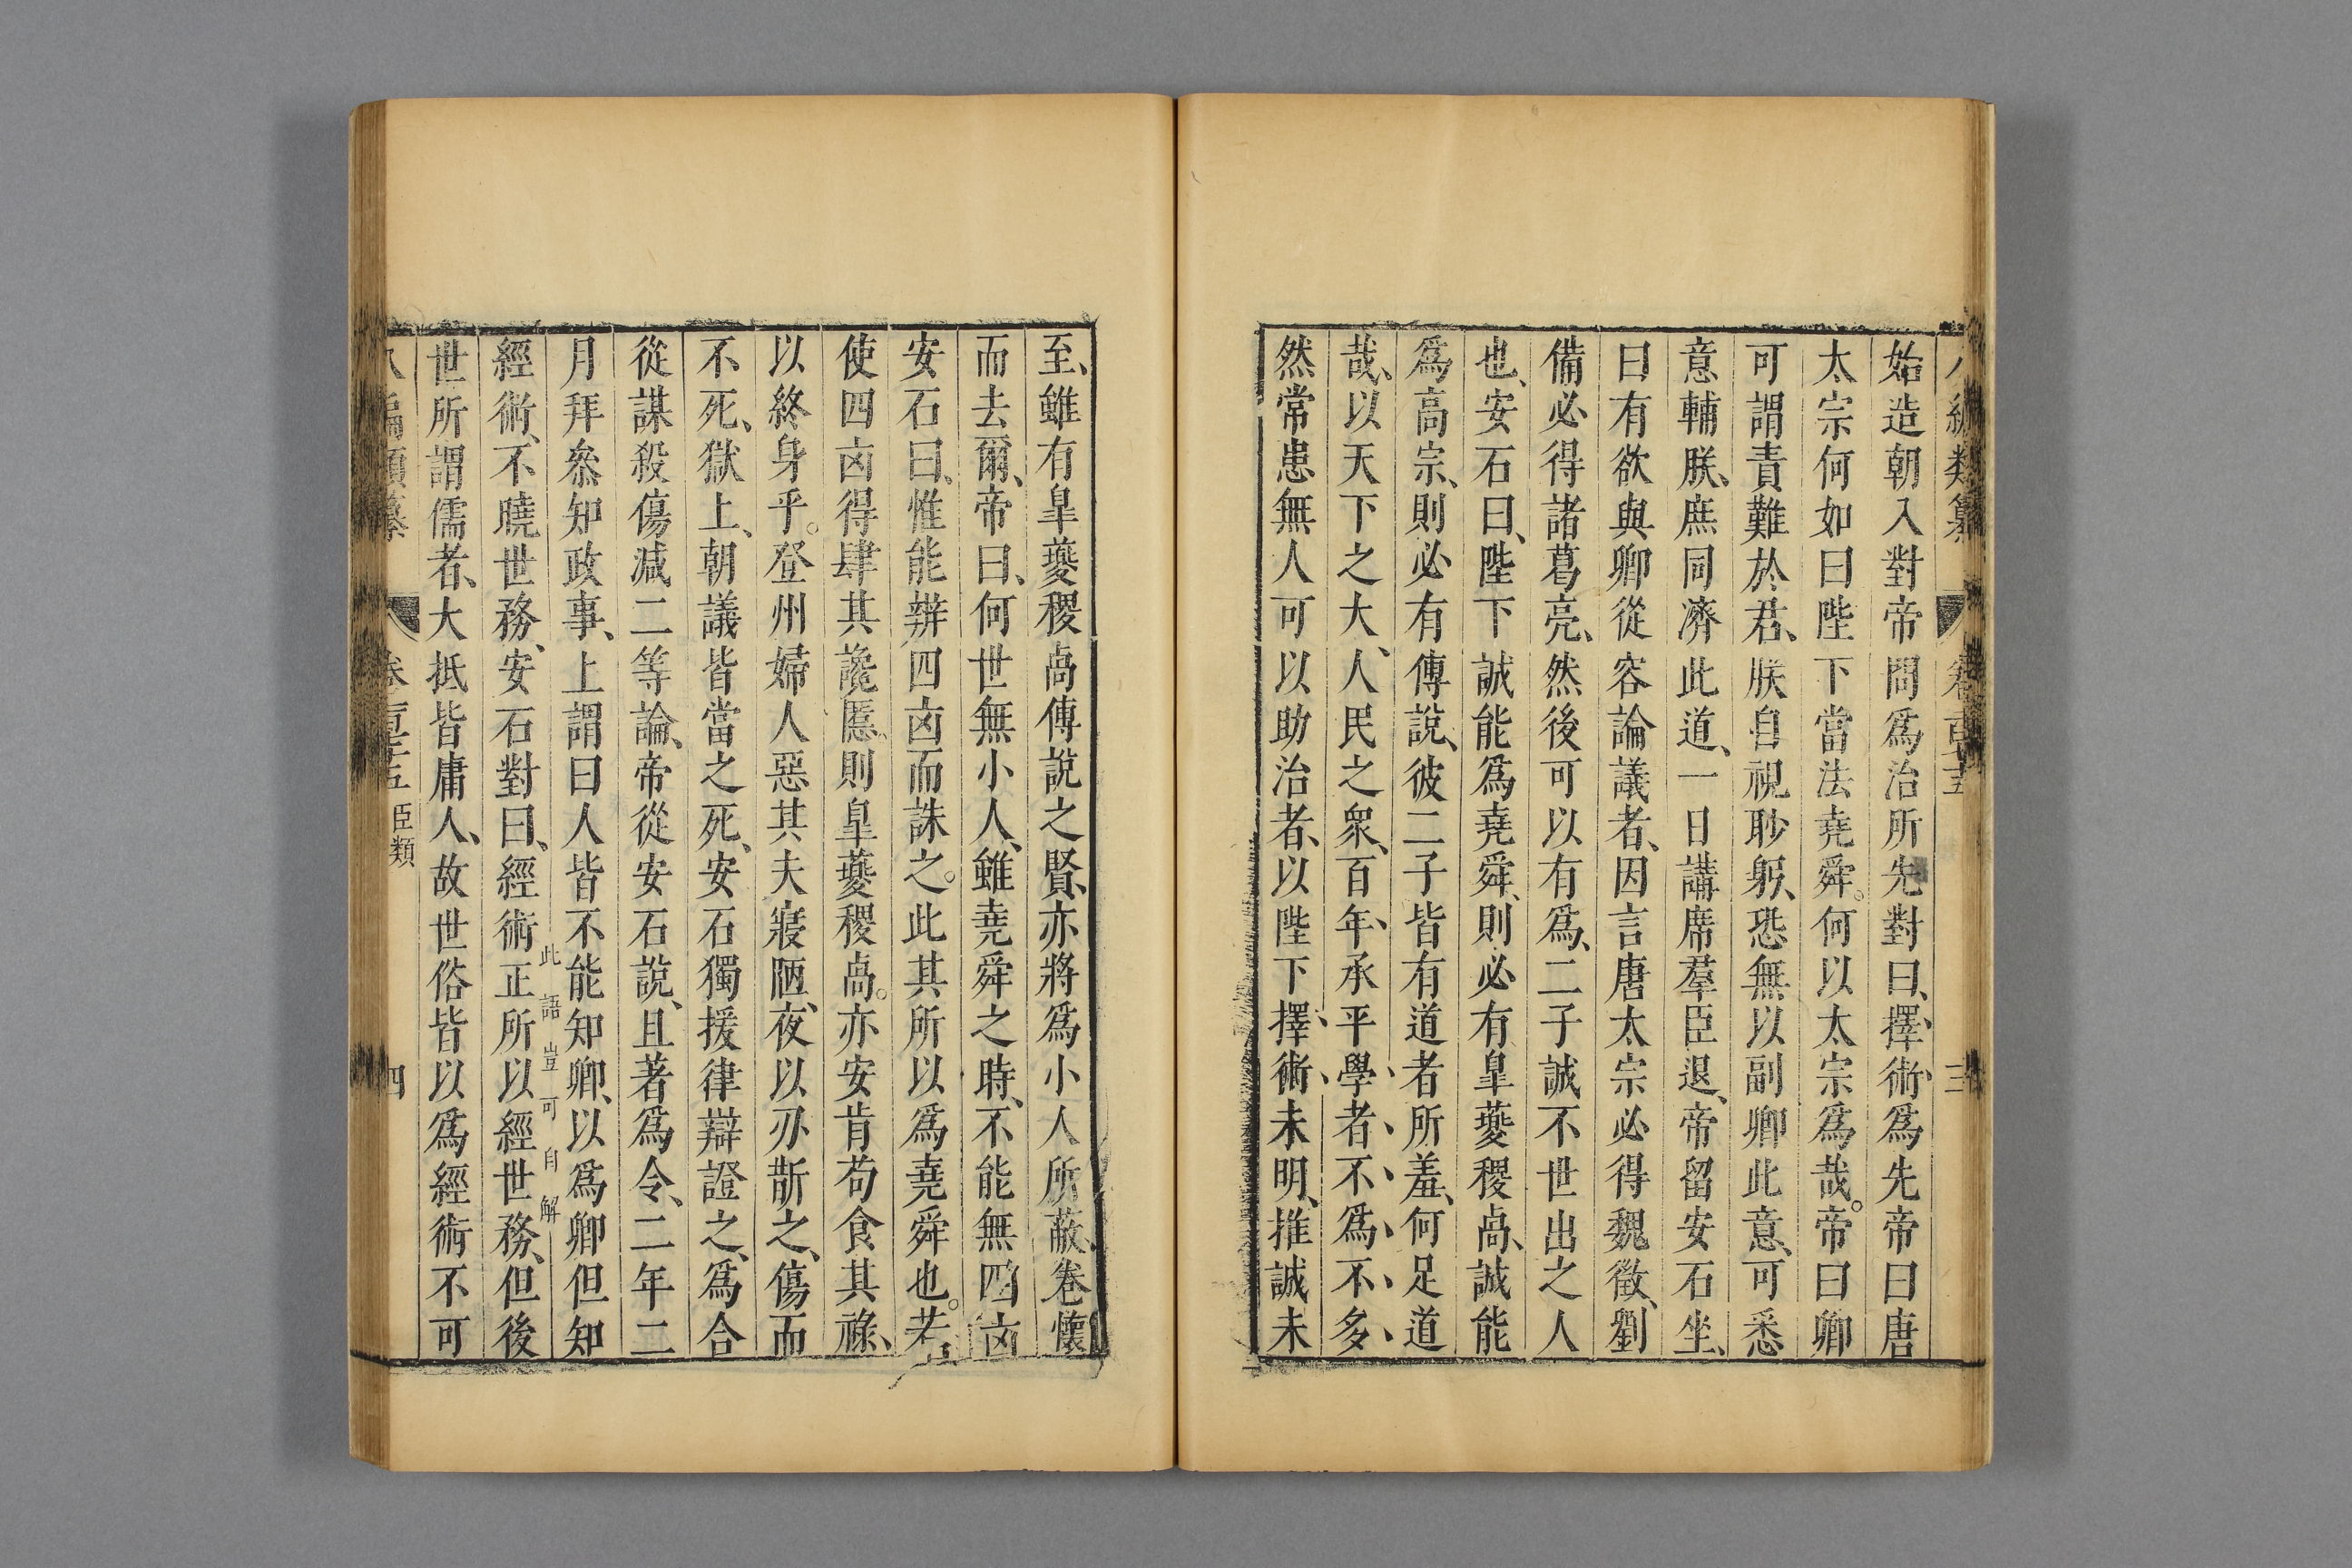 始造朝入對帝問爲治所先對曰、擇、術、爲先帝曰唐
太宗何如曰陛下當法堯舜。何以太宗爲哉。帝曰卿
可謂責難於君、朕自視眇躬、恐無以副卿此意、可悉
意輔朕、庶同濟此道、一日講席羣臣退、帝留安石坐、
曰有欲與卿從容論議者、因言唐太宗必得魏徵、劉
備必得諸葛亮、然後可以有爲、二子誠不世出之人
也、安石曰、陛下誠能爲堯舜、則必有皐夔稷卨、誠能
爲高宗、則必有傅說、彼二子皆有道者所羞、何足道
哉、以天下之大、人民之衆、百年、承平、學、者、不、爲、不、多、
然常患無人可以助治者、以陛下擇、術、未明、推誠未
至、雖有皐夔稷卨傅說之賢、亦將爲小人所蔽、卷懷
而去爾、帝曰、何世無小人、雖堯舜之時、不能無四凶
安石曰、惟能辨四凶而誅之。此其所以爲堯舜也。若
使四凶得肆其讒慝、則皐夔稷卨。亦安肯苟食其祿、
以終身乎。登州婦人惡其夫寢陋、夜以刃斮之、傷而
不死、獄上、朝議皆當之死、安石獨援律辯證之、爲合
從謀殺傷減二等論、帝從安石說、且著爲令、二年二
月拜叅知政事、上謂曰人皆不能知卿、以爲卿但知
此語豈可自解
經術、不曉世務、安石對曰、經術正所以經世務、但後
世所謂儒者、大抵皆庸人、故世俗皆以爲經術不可
八編類纂 卷百十五 臣類 四